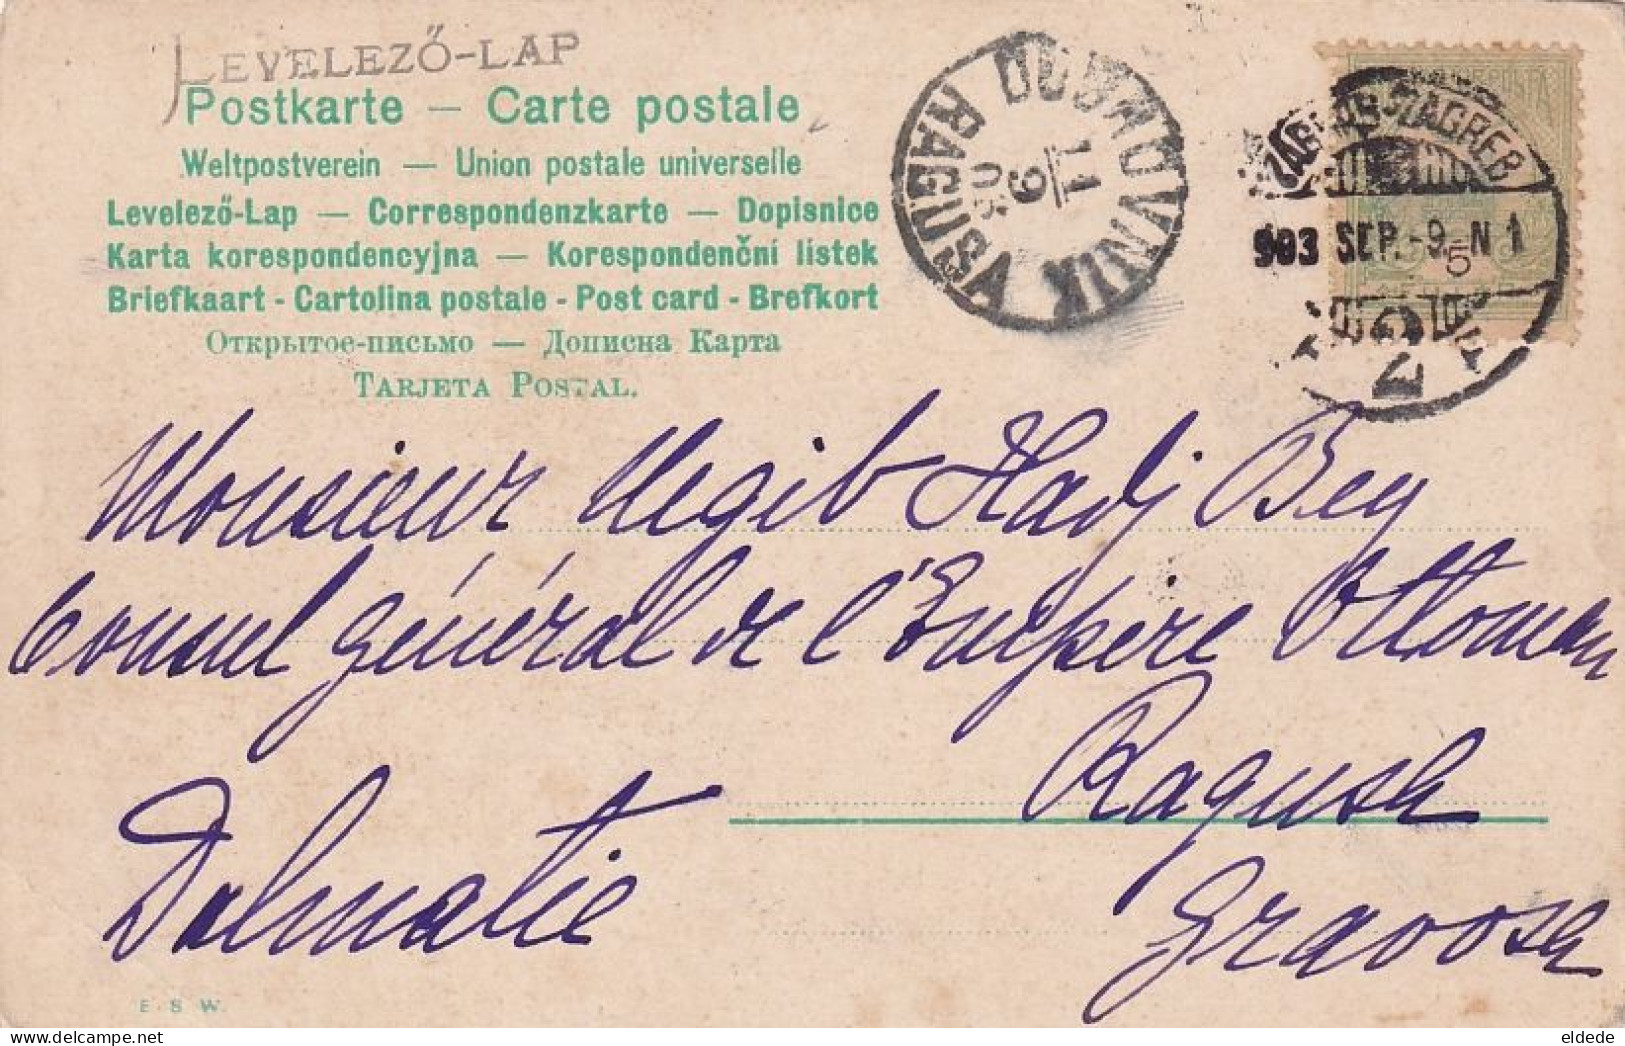 LEVELEZŐ-LAP
Postkarte — Carte postale
Weltpostverein — Union postale universelle
Levelező-Lap — Correspondenzkarte — Dopisnice
Karta korespondencyjna — Korespondenční lístek
Briefkaart - Cartolina postale - Post card - Brefkort
Открытое-письмо — Дописна Карта
TARJETA POSTAL.
DUBROVNIK
RAGUSA
11
9
03
ZÁGRÁB ZAGREB
903 SEP. -9. N 1
5
2
Monsieur Negib Hadj Bey
Consul général de l'Empire Ottoman
Ragusa
Dalmatie
Gravosa
E. S. W.
eldede